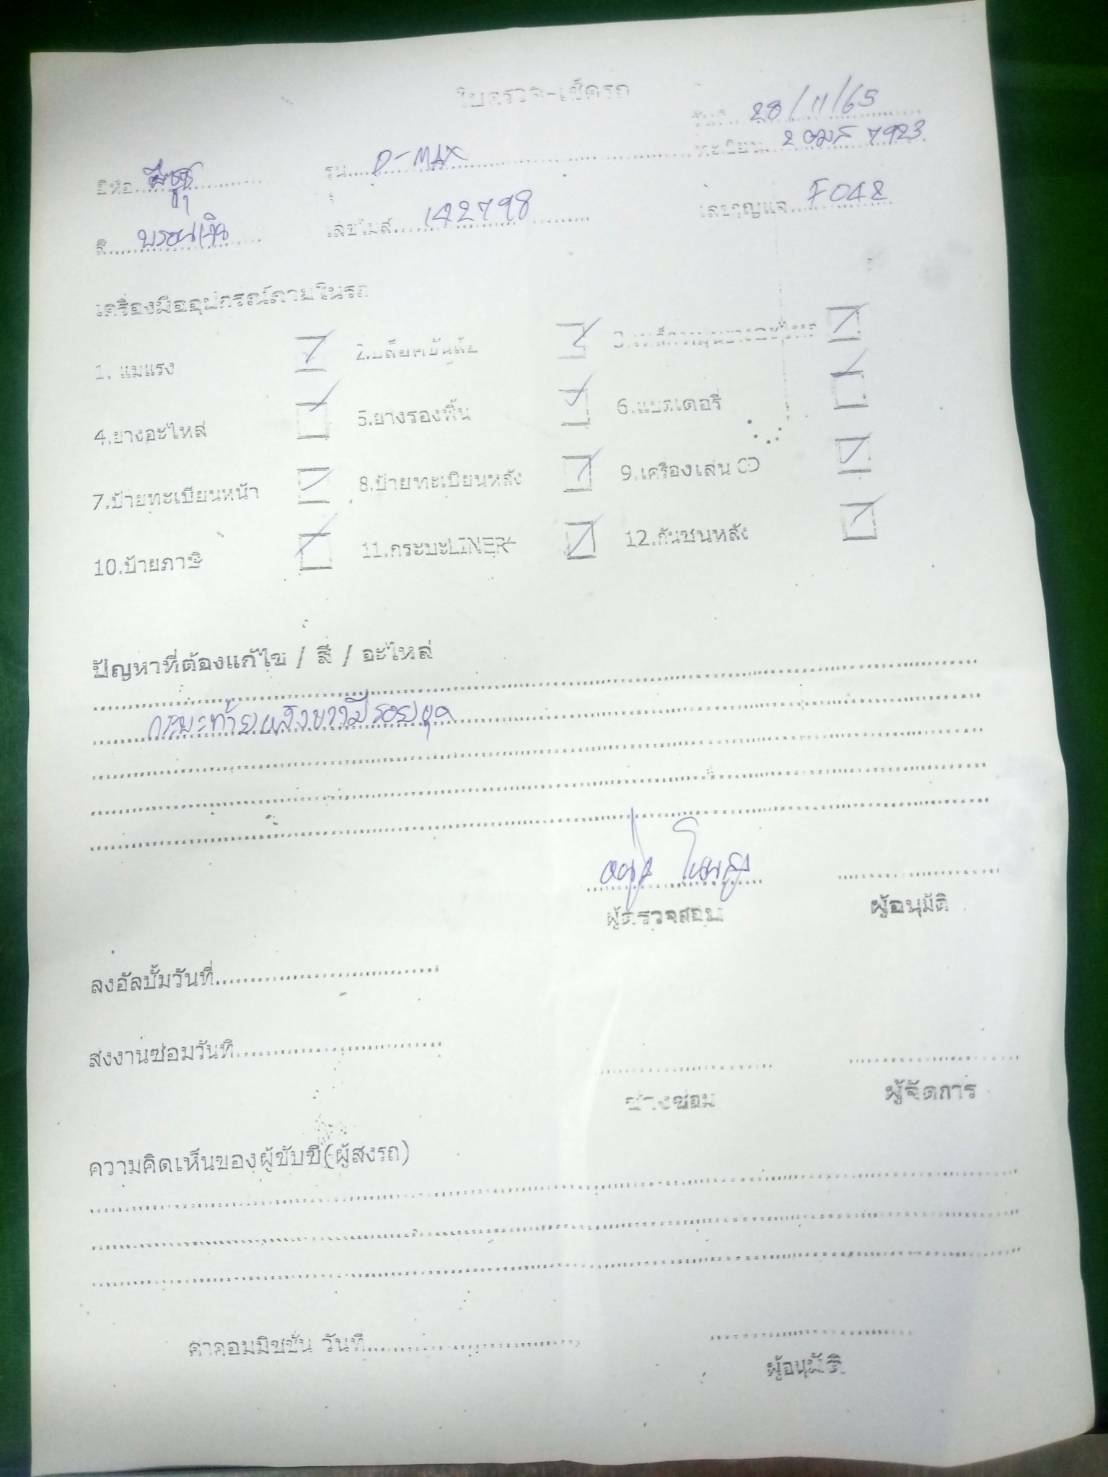 ใบตรวจ-เช็ครถ
วันที่ 28/11/65
ยี่ห้อ อีซูซุ รุ่น D-MAX ทะเบียน 2 ฒส 7923
สี บรอนเงิน เลขไมล์ 142798 เลขกุญแจ F042
เครื่องมืออุปกรณ์ภายในรถ
1. แม่แรง 2.บล็อคขันล้อ
4.ยางอะไหล่ 5.ยางรองพื้น 6.แบตเตอรี่
7.ป้ายทะเบียนหน้า 8.ป้ายทะเบียนหลัง 9.เครื่องเล่น CD
10.ป้ายภาษี 11.กระบะLINER 12.กันชนหลัง
ปัญหาที่ต้องแก้ไข / สี / อะไหล่
กระบะท้ายหลังขวามีรอยขูด
ผู้ตรวจสอบ ผู้อนุมัติ
ลงอัลบั้มวันที่
ส่งงานซ่อมวันที่
ช่างซ่อม ผู้จัดการ
ความคิดเห็นของผู้ขับขี่(ผู้ส่งรถ)
ค่าคอมมิชชั่น วันที่
ผู้อนุมัติ